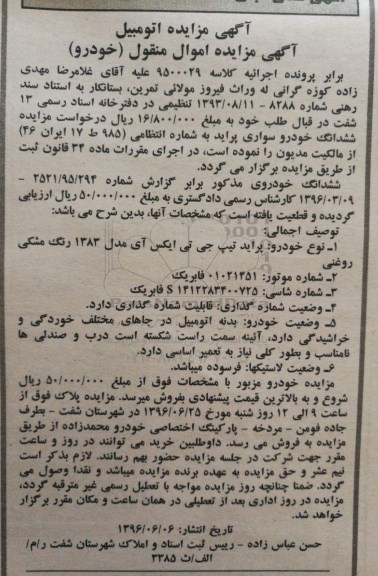 آگهی مزایده اتومبیل
آگهی مزایده اموال منقول (خودرو)
برابر پرونده اجرائیه کلاسه ۹۵۰۰۰۲۹ علیه آقای غلامرضا مهدی
زاده کوزه گرانی له وراث فیروز مولائی تمرین، بستانکار به استناد سند
رهنی شماره ۸۲۸۸ - ۱۳۹۳/۰۸/۱۱ تنظیمی در دفترخانه اسناد رسمی ۱۳
شفت در قبال طلب خود به مبلغ ۱۶/۸۰۰/۰۰۰ ریال درخواست مزایده
ششدانگ خودرو سواری پراید به شماره انتظامی (۹۸۵ ط ۱۷ ایران ۴۶)
از مالکیت مدیون را نموده است، در اجرای مقررات ماده ۳۴ قانون ثبت
از طریق مزایده برگزار می گردد.
ششدانگ خودروی مذکور برابر گزارش شماره ۲۵۲۱/۹۵/۲۹۴ -
۱۳۹۶/۰۳/۰۹ کارشناس رسمی دادگستری به مبلغ ۵۰/۰۰۰/۰۰۰ ریال ارزیابی
گردیده و قطعیت یافته است که مشخصات آنها، بدین شرح می باشد:
توصیف اجمالی:
۱ـ نوع خودرو: پراید تیپ جی تی ایکس آی مدل ۱۳۸۳ رنگ مشکی
روغنی
۲ـ شماره موتور: ۰۱۰۲۱۳۵۱ فابریک
۳ـ شماره شاسی: S ۱۴۱۲۲۸۳۴۰۰۷۲۵ فابریک
۴ـ وضعیت شماره گذاری: قابلیت شماره گذاری دارد.
۵ـ وضعیت خودرو: بدنه اتومبیل در جاهای مختلف خوردگی و
خراشیدگی دارد، آئینه سمت راست شکسته است درب و صندلی ها
نامناسب و بطور کلی نیاز به تعمیر اساسی دارد.
۶ـ وضعیت لاستیکها: فرسوده میباشد.
مزایده خودرو مزبور با مشخصات فوق از مبلغ ۵۰/۰۰۰/۰۰۰ ریال
شروع و به بالاترین قیمت پیشنهادی بفروش میرسد. مزایده پلاک فوق از
ساعت ۹ الی ۱۲ روز شنبه مورخ ۱۳۹۶/۰۶/۲۵ در شهرستان شفت - بطرف
جاده فومن - مردخه - پارکینگ اختصاصی خودرو محمدزاده از طریق
مزایده به فروش می رسد. داوطلبین خرید می توانند در روز و ساعت
مقرر جهت شرکت در جلسه مزایده حضور بهم رسانند. لازم بذکر است
نیم عشر و حق مزایده به عهده برنده مزایده میباشد و نقدا وصول می
گردد. ضمنا چنانچه روز مزایده مواجه با تعطیل رسمی غیر مترقبه گردد،
مزایده در روز اداری بعد از تعطیلی در همان ساعت و مکان مقرر برگزار
خواهد شد.
تاریخ انتشار: ۱۳۹۶/۰۶/۰۶
حسن عباس زاده - رییس ثبت اسناد و املاک شهرستان شفت ر/م/
الف/ث ۳۳۸۵